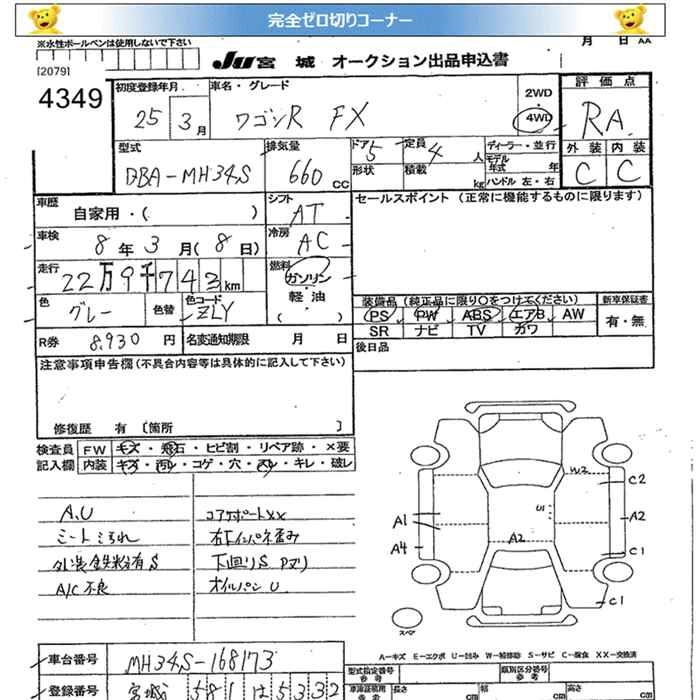 完全ゼロ切りコーナー
※水性ボールペンは使用しないで下さい
月 日 AA
[2079]
JU 宮 城 オークション出品申込書
4349
初度登録年月 車名・グレード 2WD ・ 4WD 評価点
25 3月 ワゴンR FX RA
型式 排気量 ドア 5 定員 4人 ディーラー・並行 外装 内装
DBA-MH34S 660 CC 形状 積載 kg モデル年式 年 C C
ハンドル 左・右
車歴 自家用・( ) シフト AT セールスポイント(正常に機能するものに限ります)
車検 8年 3月(8日) 冷房 AC
走行 22万9千743km 燃料 ガソリン・軽油 ( )
色 グレー 色替 色コード ZLY
装備品(純正品に限り○をつけてください) 新車保証書
PS PW ABS エアB AW 有・無
SR ナビ TV カワ
R券 8,930円 名変通知期限 月 日 後日品
注意事項申告欄(不具合内容等は具体的に記入して下さい)
修復歴 有〔箇所 〕
検査員 FW キズ・飛石・ヒビ割・リペア跡・×要
記入欄 内装 キズ・汚レ・コゲ・穴・スレ・キレ・破レ
A、U コアサポートXX
シートよごれ 右下インパネ歪み
外装鉄粉有S 下回りS Pヌリ
A/C不良 オイルパンU
W2
C2
U1
A1 A2
A2
A4 C1
C1
スペア
A-キズ E-エクボ U-凹み W-補修跡 S-サビ C-腐食 XX-交換済
車台番号 MH34S-168173
型式指定番号 参考 類別区分番号 参考
登録番号 宮城 581 は 5332
長さ cm 幅 cm 高さ cm